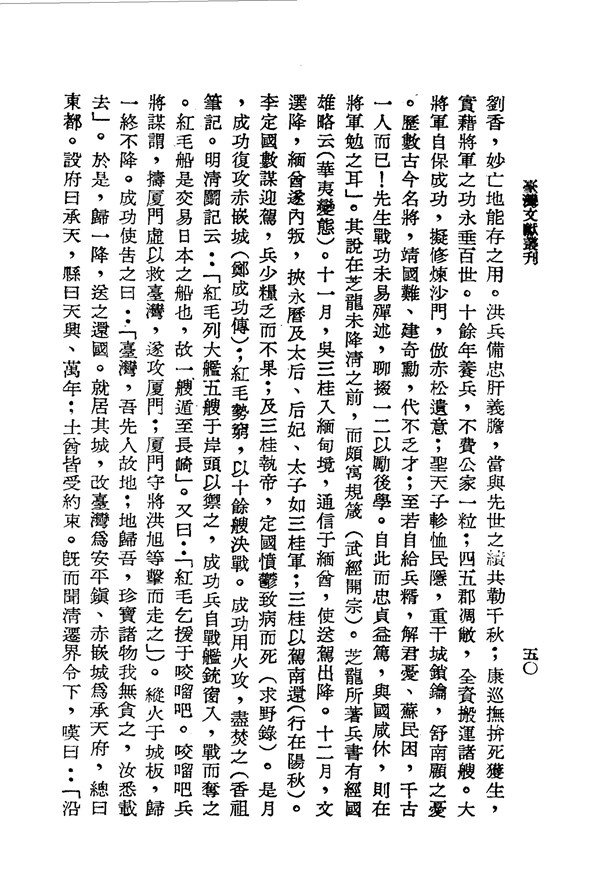 臺灣文獻叢刊
五〇
劉香，妙亡地能存之用。洪兵備忠肝義膽，當與先世之績共勒千秋；康巡撫拚死獲生，
實藉將軍之功永垂百世。十餘年養兵，不費公家一粒；四五郡凋敝，全資搬運諸艘。大
將軍自保成功，擬修煉沙門，倣赤松遺意；聖天子軫恤民隱，重干城鎖鑰，舒南顧之憂
。歷數古今名將，靖國難、建奇勳，代不乏才；至若自給兵糈，解君憂、蘇民困，千古
一人而已！先生戰功未易殫述，聊掇一二以勵後學。自此而忠貞益篤，與國咸休，則在
將軍勉之耳」。其說在芝龍未降清之前，而頗寓規箴（武經開宗）。芝龍所著兵書有經國
雄略云（華夷變態）。十一月，吳三桂入緬甸境，通信于緬酋，使送駕出降。十二月，文
選降，緬酋遂內叛，挾永曆及太后、后妃、太子如三桂軍；三桂以駕南還（行在陽秋）。
李定國數謀迎駕，兵少糧乏而不果；及三桂執帝，定國憤鬱致病而死（求野錄）。是月
，成功復攻赤嵌城（鄭成功傳）；紅毛勢窮，以十餘艘決戰。成功用火攻，盡焚之（香祖
筆記。明清鬪記云：「紅毛列大艦五艘于岸頭以禦之，成功兵自戰艦銃窗入，戰而奪之
。紅毛船是交易日本之船也，故一艘遁至長崎」。又曰：「紅毛乞援于咬𠺕吧。咬𠺕吧兵
將謀謂，擣厦門虛以救臺灣，遂攻厦門；厦門守將洪旭等擊而走之」）。縱火于城板，歸
一終不降。成功使告之曰：「臺灣，吾先人故地；地歸吾，珍寶諸物我無貪之，汝悉載
去」。於是，歸一降，送之還國。就居其城，改臺灣爲安平鎭、赤嵌城爲承天府，總曰
東都。設府曰承天，縣曰天興、萬年；土酋皆受約束。旣而聞清遷界令下，嘆曰：「沿